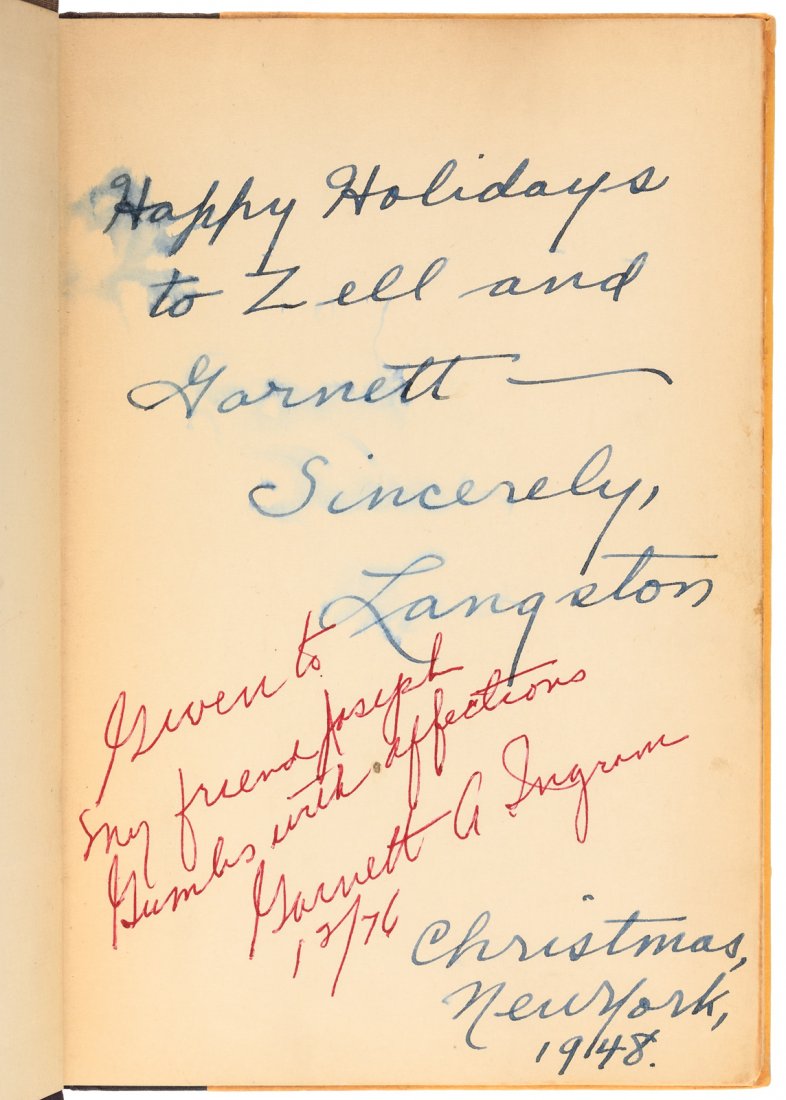 Happy Holidays
to Zell and
Garnett —
Sincerely,
Langston
Given to
my friend Joseph
Gumbs with affections
Garnett A. Ingram
12/76
Christmas,
New York,
1948.